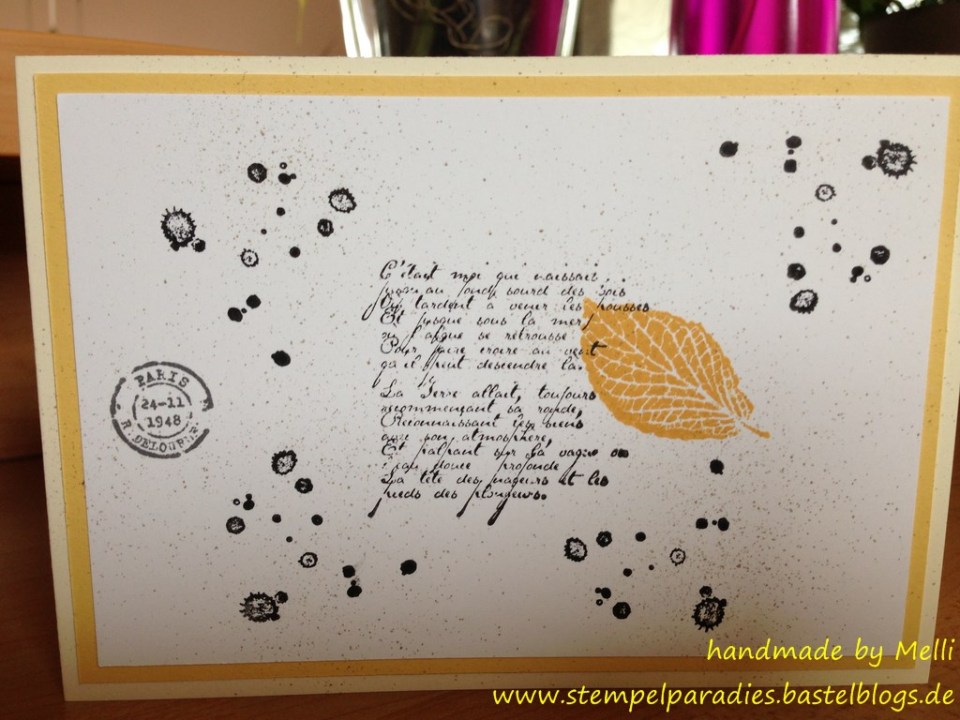 C'était moi qui naissais...
jusqu'au fond sourd des bois
Qui tardent à venir les pousses
Et jusque sous la mer,
où l'algue se retrousse
Pour faire croire au vent
qu'il peut descendre là.
La Terre allait, toujours
recommençant sa ronde,
Reconnaissant les siens
avec son atmosphère,
Et palpant sur la vague ou
l'eau douce profonde
La tête des nageurs et les
pieds des plongeurs.
PARIS
24-11
1948
handmade by Melli
www.stempelparadies.bastelblogs.de